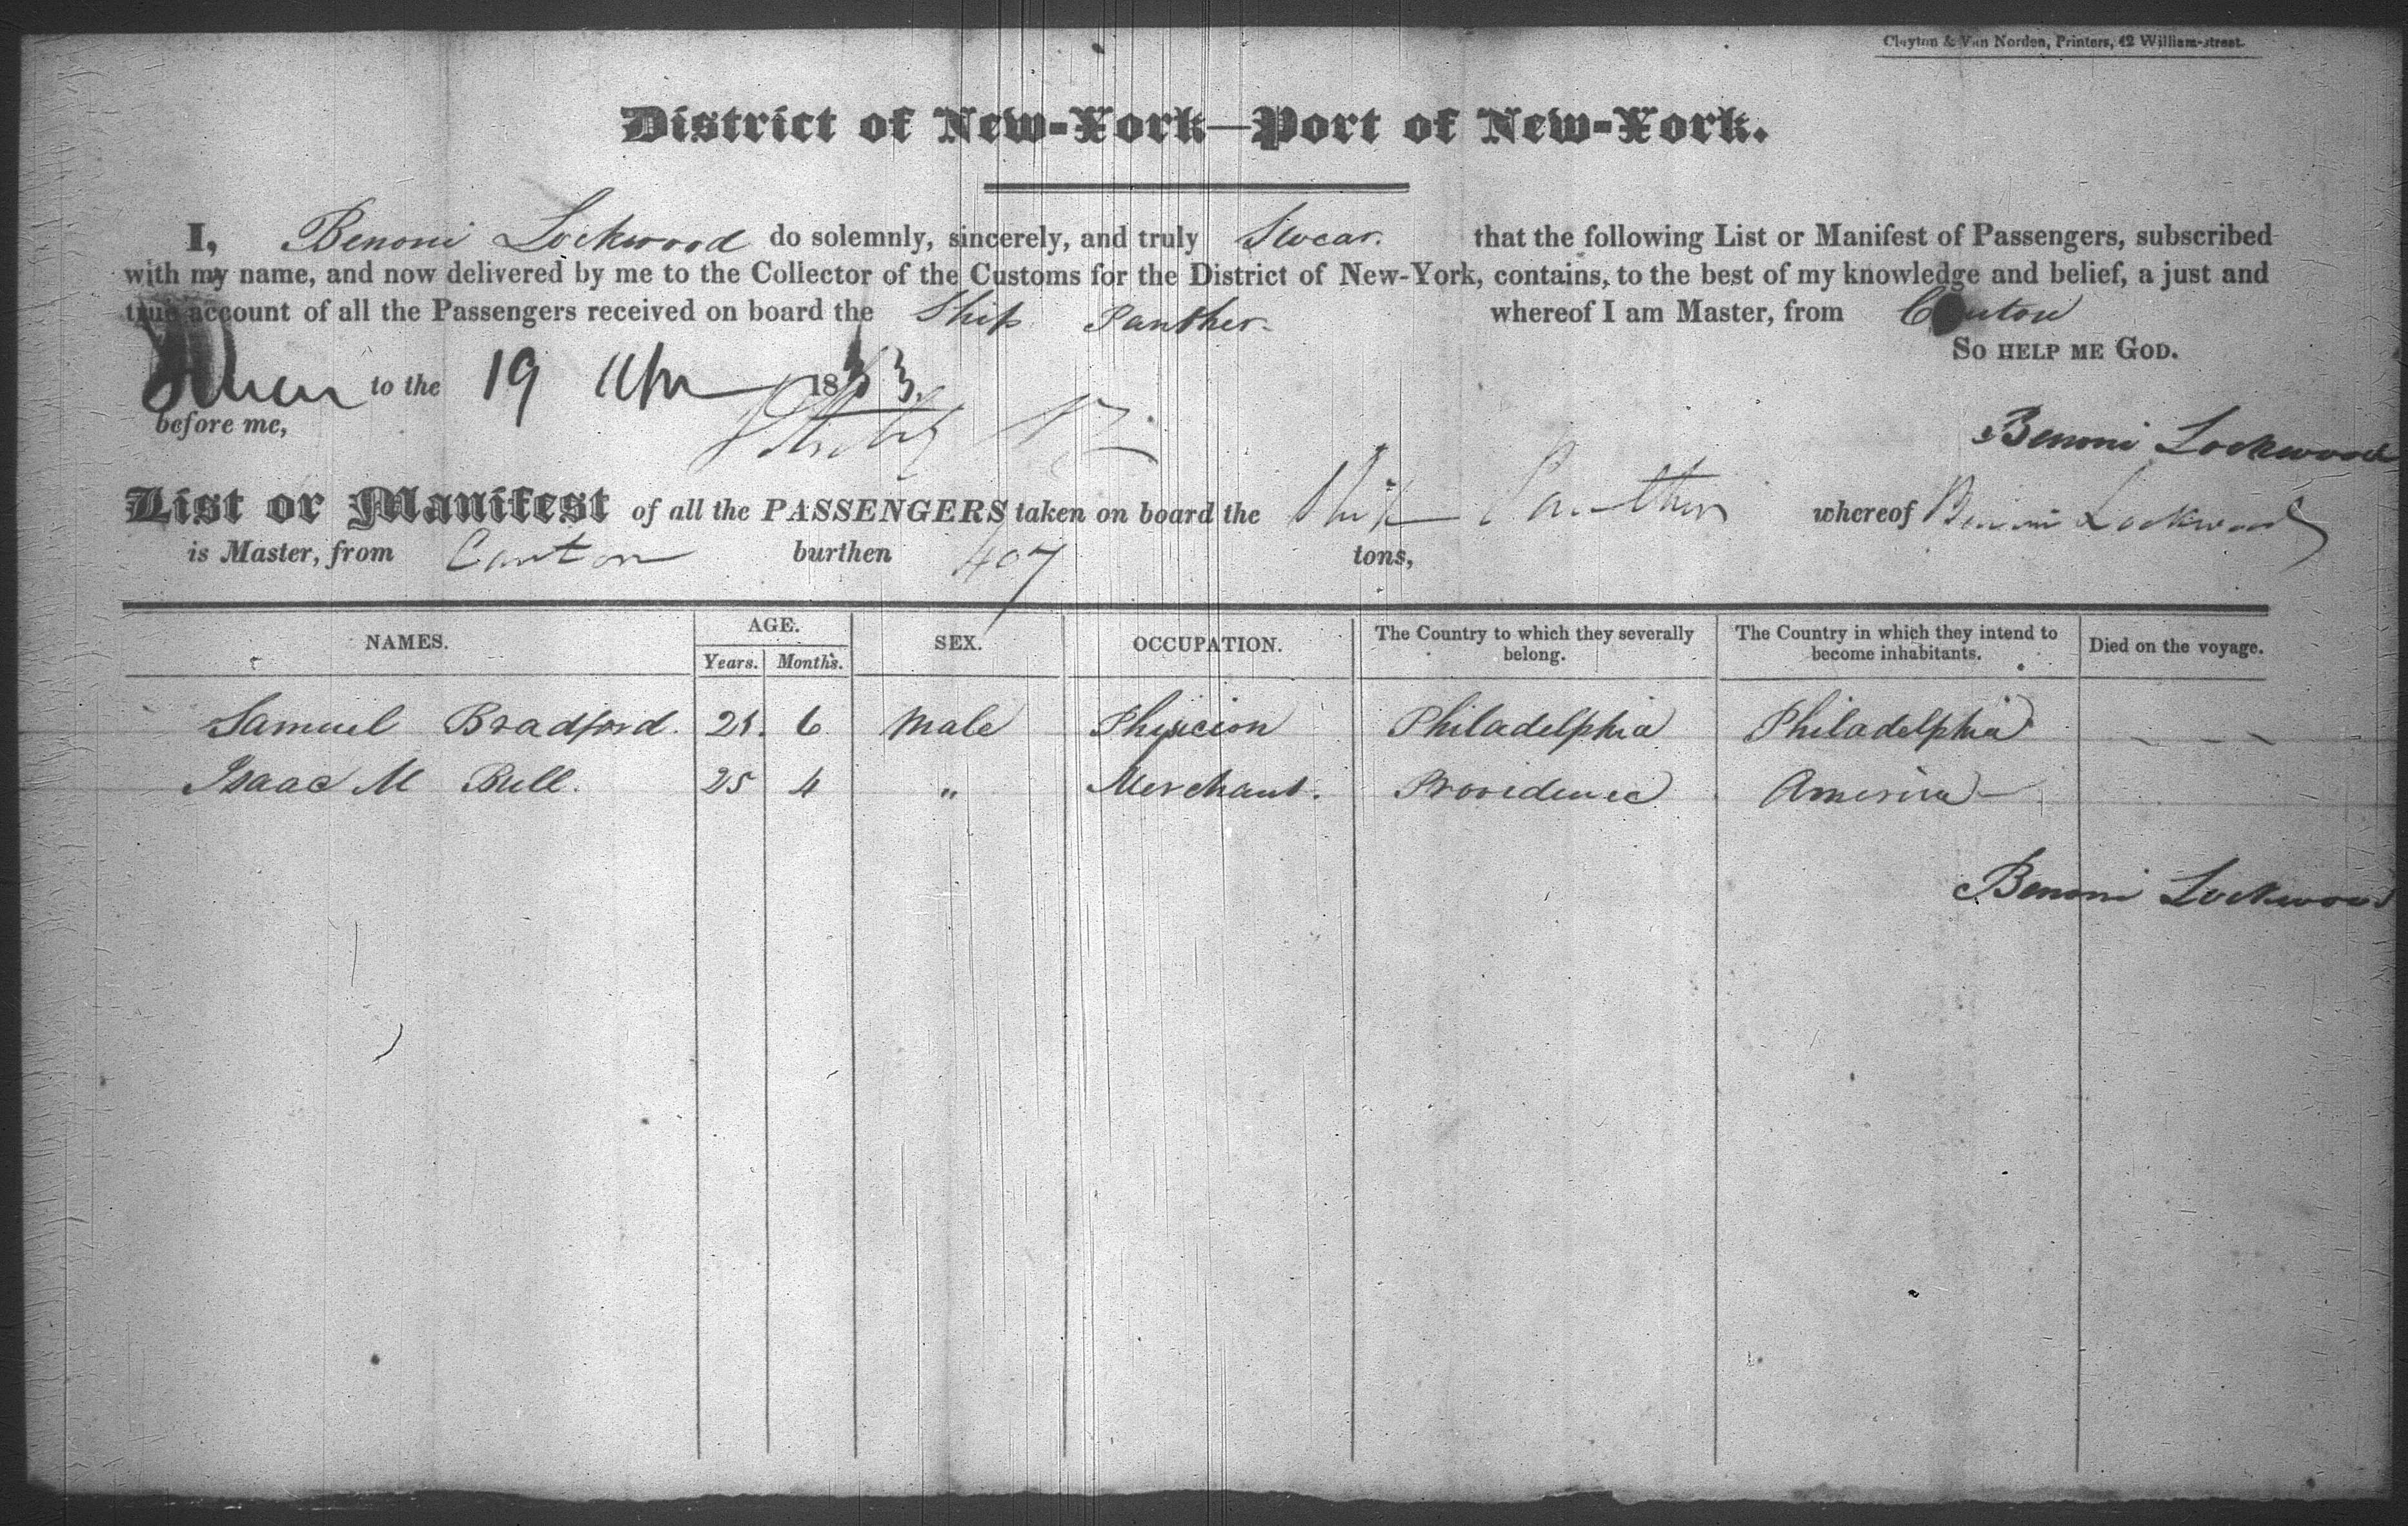 Clayton & Van Norden, Printers, 42 William-street.
District of New-York—Port of New-York.
I, Benoni Lockwood do solemnly, sincerely, and truly Swear. that the following List or Manifest of Passengers, subscribed
with my name, and now delivered by me to the Collector of the Customs for the District of New-York, contains, to the best of my knowledge and belief, a just and
true account of all the Passengers received on board the Ship Panther. whereof I am Master, from Canton
So help me God.
to the 19 Apr 1833.
before me,
Benoni Lockwood
List or Manifest of all the PASSENGERS taken on board the Ship Panther whereof Benoni Lockwood
is Master, from Canton burthen 407 tons,
NAMES. AGE. Years. Months. SEX. OCCUPATION. The Country to which they severally belong. The Country in which they intend to become inhabitants. Died on the voyage.
Samuel Bradford. 6 Male Physicion Philadelphia Philadelphia
Isaac M Bull. 25 4 " Merchant. Providence America
Benoni Lockwood